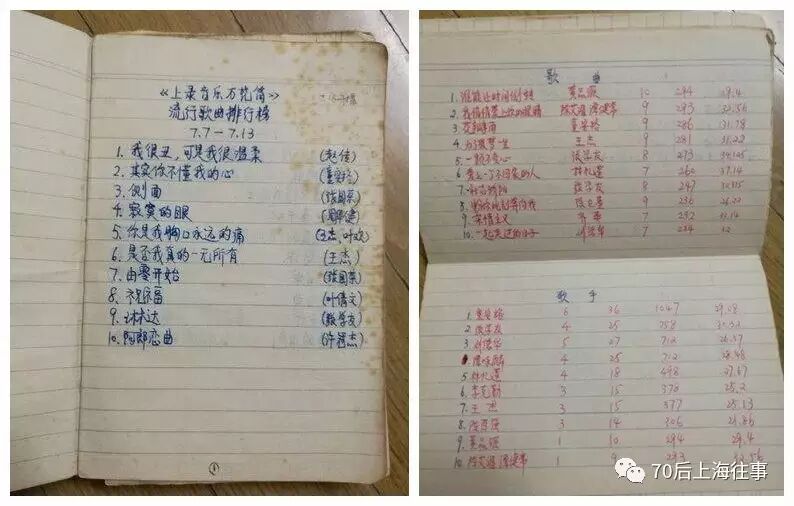 《上录音乐万花筒》
流行歌曲排行榜
7.7-7.13
1. 我很丑,可是我很温柔 (赵传)
2. 其实你不懂我的心 (童安格)
3. 侧面 (张国荣)
4. 寂寞的眼 (周华健)
5. 你是我胸口永远的痛 (王杰、叶欢)
6. 是否我真的一无所有 (王杰)
7. 由零开始 (张国荣)
8. 祝福 (叶倩文)
9. 琳达 (张学友)
10. 阿郎恋曲 (许冠杰)
①
歌曲
1. 谁能让时间倒转 黄品源 10 294 29.4
2. 我偷偷爱上你的眼睛 陈艾湄 谭健常 9 293 32.56
3. 童安格 9 286 31.78
4. 为了爱梦一生 王杰 9 281 31.22
5. 一颗不变心 张学友 8 273 34.125
6. 爱上一个不回家的人 林忆莲 7 260 37.14
7. 张学友 8 247 30.875
8. 9 236 26.22
9. 齐秦 7 232 33.14
10. 一起走过的日子 刘德华 7 224 32
歌手
1. 童安格 6 36 1047 29.08
2. 张学友 4 25 758 30.32
3. 刘德华 5 27 712 26.37
谭咏麟 4 25 712 28.48
5. 林忆莲 4 18 498 27.67
6. 李克勤 3 15 378 25.2
7. 王杰 3 15 377 25.13
8. 陈百强 3 14 306 21.86
9. 黄品源 1 10 294 29.4
10. 陈艾湄 谭健常 1 9 293 32.56
70后上海往事